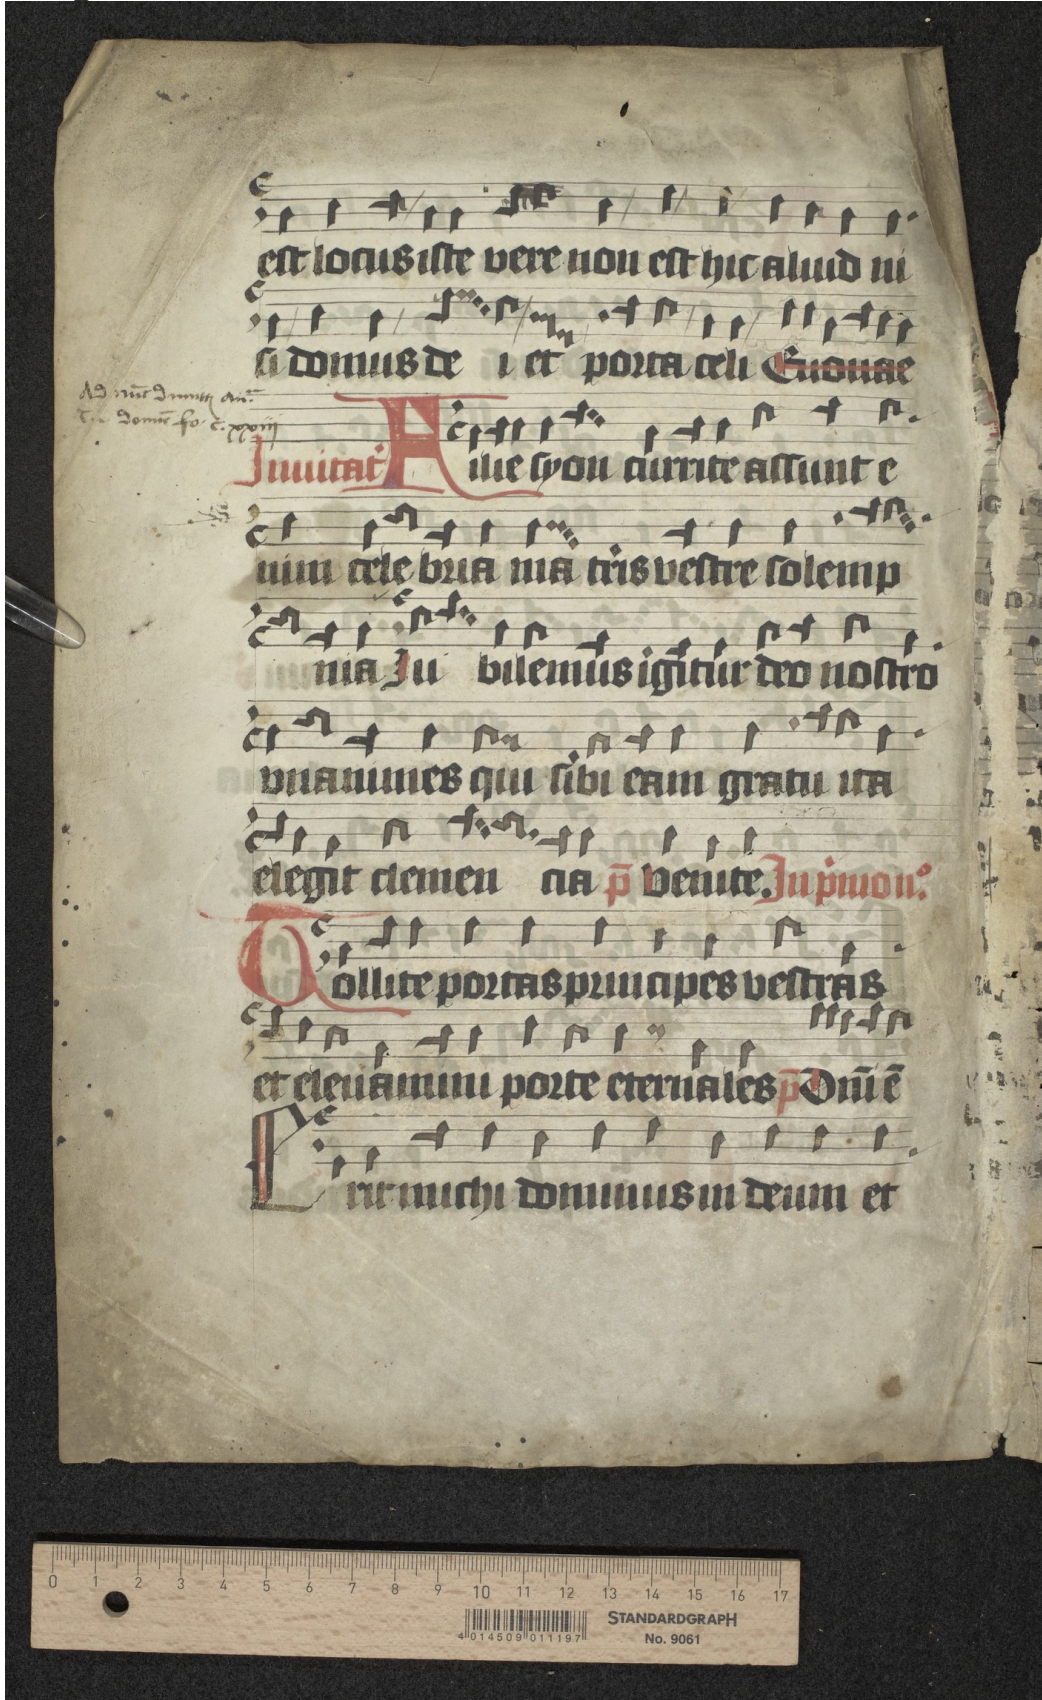 est locus iste vere non est hic aliud ni
si domus de i et porta celi Euouae
Ad nūc dimittis an̄
domū fo c. xxiij
Invitat A ilie syon currite assunt e
nim cele bria ma tris vestre solemp
nia Ju bilemus igitur deo nostro
vnanimes qui sibi eam gratu ita
elegit clemen cia p̄ Venite. In p̄mo n°
Tollite portas principes vestras
et elevamini porte eternales p̄ Dn̄i ē
E rit michi dominus in deum et
0 1 2 3 4 5 6 7 8 9 10 11 12 13 14 15 16 17
STANDARDGRAPH
No. 9061
4 014509 011197